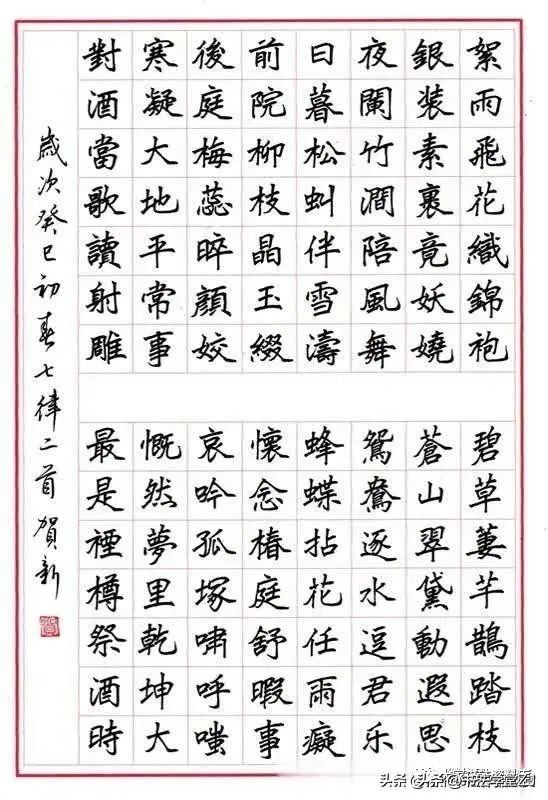 絮雨飛花織錦袍
銀装素裹竟妖嬈
夜闌竹澗陪風舞
日暮松虯伴雪濤
前院柳枝晶玉綴
後庭梅蕊晬顏姣
寒凝大地平常事
對酒當歌讀射雕
碧草萋芊鵲踏枝
蒼山翠黛動遐思
鴛鴦逐水逗君乐
蜂蝶拈花任雨癡
懷念椿庭舒暇事
哀吟孤塚嘯呼嗤
慨然夢里乾坤大
最是禋樽祭酒時
歲次癸巳初春七律二首賀新
头条